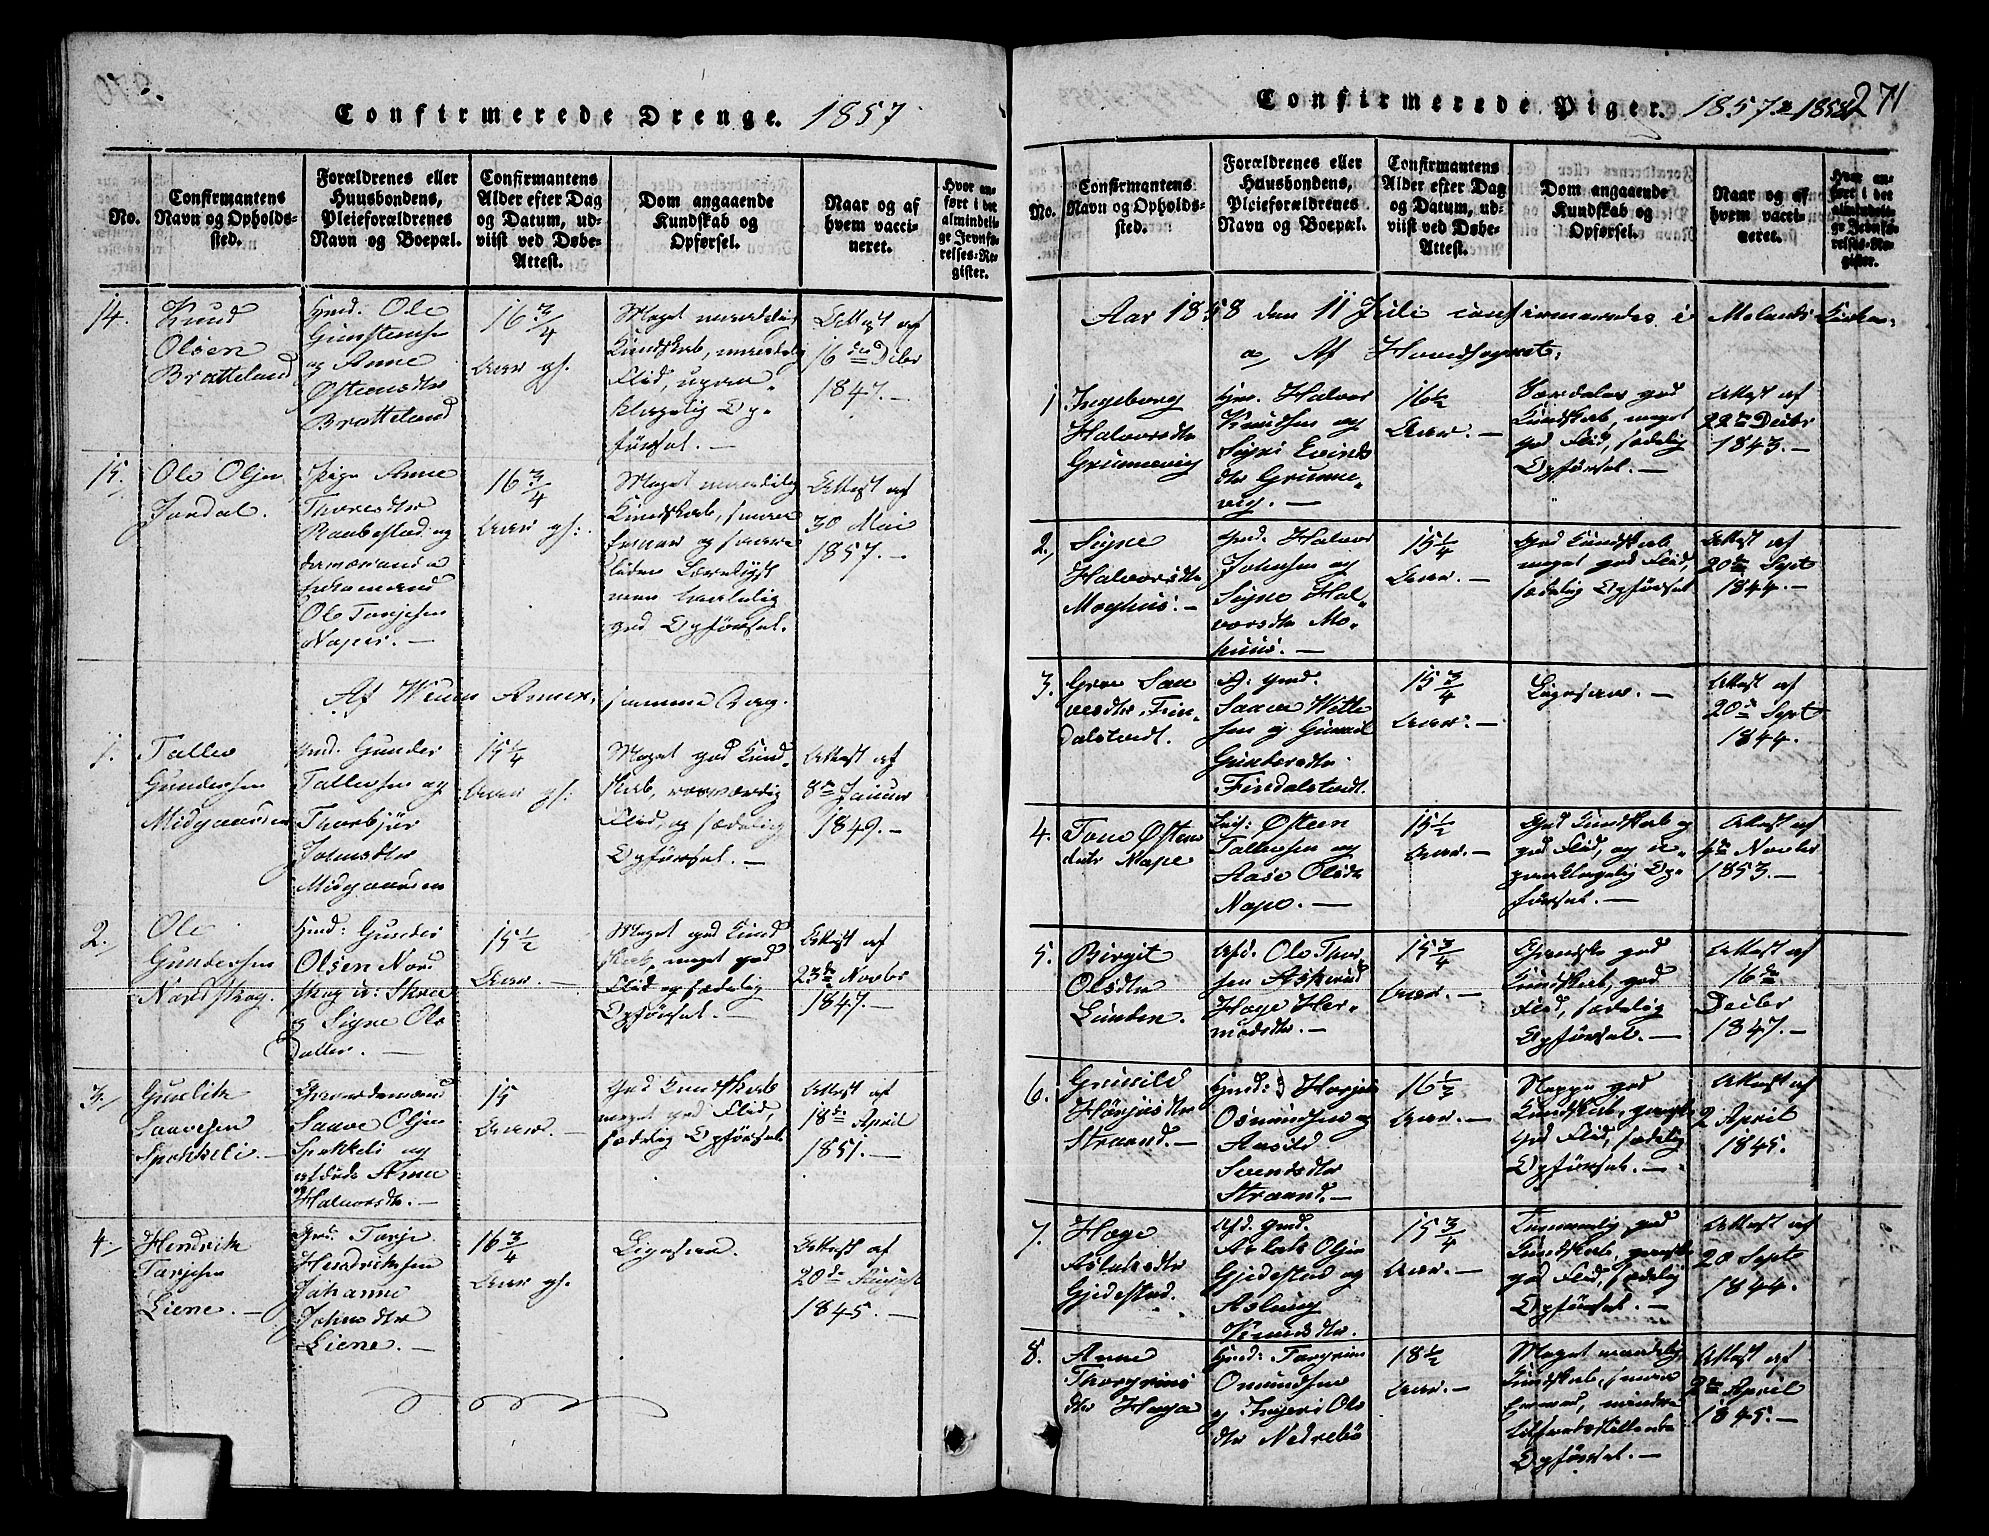 Confirmerede Drenge. 1857
No.
Confirmantens Navn og Opholdssted.
Forældrenes eller Huusbondens, Pleieforældrenes Navn og Boepæl.
Confirmantens Alder efter Dag og Datum, udviist ved Døbe-Attest.
Dom angaaende Kundskab og Opførsel.
Naar og af hvem vaccineret.
Hvor anført i det almindelige Jevnførelses-Register.
14.
Knud
Olsen
Bratteland
Hmd. Ole
Gunstensen
og Anne
Østensdtr
Bratteland
16 3/4
Aar gl.
Meget maadelig
Kundskab, maadelig
Flid, upaa-
klagelig Op-
førsel. —
Attest af
16 de Decbr
1847. —
15.
Ole Olsen
Jordal.
Pige Anne
Thoresdtr
Raabestad og
Ole Tarjesen
Naper. —
16 3/4
Aar gl:
Meget maadelig
Kundskab,
men
god Opførsel.
Attest af
30 Mai
1857. —
Af Annex, samme Dag.
1.
Tallev
Gundersen
Midgaarden
Hmd. Gunder
Tallevsen og
Thorbjør
Johnsdtr
Midgaarden
15 1/4
Aar gl:
Meget god Kund-
skab,
Flid, og sædelig
Opførsel. —
Attest af
8de Januar
1849. —
2.
Ole
Gundersen
Nordskog.
Hmd: Gunder
Olsen Nord
skog
og Signe Ols
Datter. —
15 1/2
Aar. —
Meget god Kund
skab, meget god
Flid og sædelig
Opførsel. —
Attest af
23de Novbr
1847. —
3.
Gunlik
Saavesen
Spokkeli. —
Gaardemand
Saave Olsen
Spokkeli og
afdøde Anne
Halvorsdtr. —
15
Aar. —
God Kundskab
meget god Flid,
sædelig Opførsel.
Attest af
18de April
1851. —
4.
Hendrik
Tarjesen
Liene. —
Gmd: Tarje
Hendriksen
Johanne
Johnsdtr
Liene. —
16 3/4
Aar gl.
Ligesaa.
Attest af
20de August
1845. —
Confirmerede Piger. 1857 & 1858
271
No.
Confirmantens Navn og Opholdssted.
Forældrenes eller Huusbondens, Pleieforældrenes Navn og Boepæl.
Confirmantens Alder efter Dag og Datum, udviist ved Døbe-Attest.
Dom angaaende Kundskab og Opførsel.
Naar og af hvem vaccineret.
Hvor anført i det almindelige Jevnførelses-Register.
Aar 1858 den 11 Juli confirmeredes i Molands Kirke:
a, Af Hovedsognet:
1
Ingeborg
Halvorsdtr
Grunnevig
Halvor
Knudsen og
Sigri Eivinds
dtr Grunne-
vig. —
16 1/2
Aar. —
Særdeles god
Kundskab, meget
god Flid, sædelig
Opførsel. —
Attest af
22de Decbr
1843. —
2.
Signe
Halvorsdtr
Moghus. —
Gmd. Halvor
Johnsen og
Signe Hal-
vorsdtr Mo-
huus. —
15 1/4
Aar. —
God Kundskab
meget god Flid,
sædelig Opførsel
Attest af
20de Sept
1844. —
3.
Groe Saa
vesdtr Fin-
dalstvedt.
Gmd.
Saave
sen og Gunild
Gunbersdtr
Findalstvedt.
15 3/4
Aar. —
Ligesaa. —
Attest af
20de Sept
1844.
4.
Tone Østens
datr Nape
Østeen
Tallevsen og
Aase Olsdtr
Nape. —
15 1/2
Aar. —
God Kundskab og
god Flid, og u-
paaklagelig Op-
førsel. —
Attest af
4de Novbr
1853. —
5.
Birgit
Olsdtr
Lunden.
Afd. Ole Thor-
sen
Hæge Her-
modsdtr. —
15 3/4
Aar. —
Ganske god
Kundskab, god
Flid, sædelig
Opførsel. —
Attest af
16de
Decbr
1847. —
6.
Gunild
Hørjusdtr
Straand. —
Gmd:
Osmundsen og
Svensdtr
Straand. —
16 1/3
Aar. —
god
Kundskab, ganske
god Flid, sædelig
Opførsel. —
Attest af
2 April
1845.
7.
Hæge
Aslaksdtr
Gjedestad.
Afd. Gmd.
Aslak Olsen
Gjedestad og
Aslaug
Knudsdtr.
15 3/4
Aar. —
Temmelig god
Kundskab, ganske
god Flid, sædelig
Opførsel. —
Attest af
20 Sept
1844.
8.
Anne
Thorgrims
dtr Haga
Hmd: Torgrim
Omundsen
og Ingeri Ols
dtr Nedrebø
18 1/2
Aar. —
Meget maadelig
Kundskab,
mindre
tilfredsstillende
Opførsel. —
Attest af
2de April
1845. —